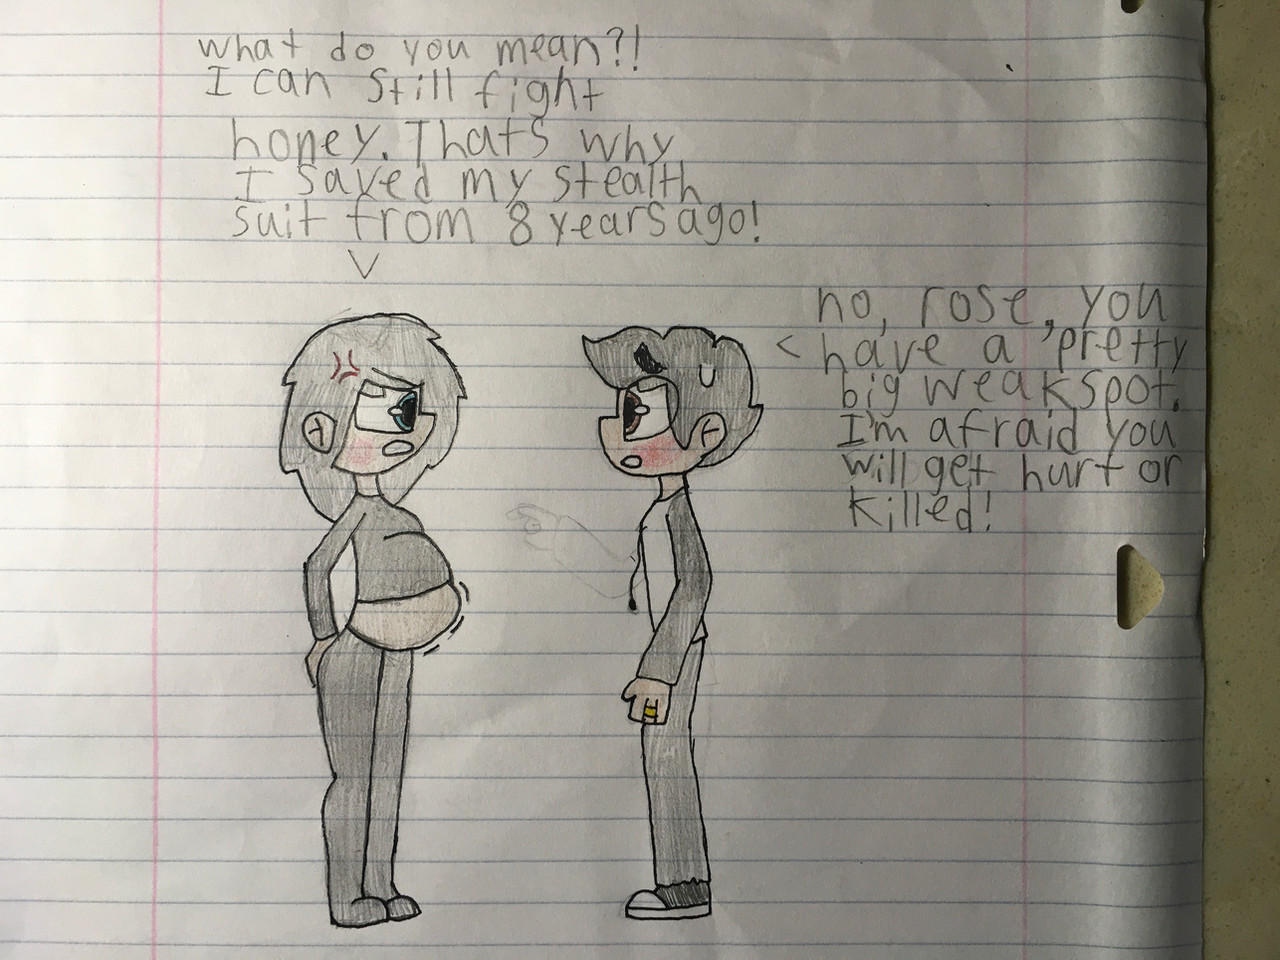 what do you mean?!
I can still fight
honey. Thats why
I saved my stealth
suit from 8 years ago!
no, rose, you
have a pretty
big weakspot.
I'm afraid you
will get hurt or
killed!